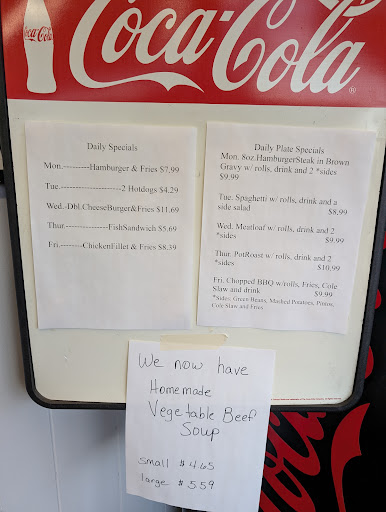 Coca-Cola
Coca-Cola®
Daily Specials
Mon.---------Hamburger & Fries $7.99
Tue.--------------------2 Hotdogs $4.29
Wed.-Dbl.CheeseBurger&Fries $11.69
Thur.--------------FishSandwich $5.69
Fri.--------ChickenFillet & Fries $8.39
Daily Plate Specials
Mon. 8oz.HamburgerSteak in Brown
Gravy w/ rolls, drink and 2 *sides
$9.99
Tue. Spaghetti w/ rolls, drink and a
side salad $8.99
Wed. Meatloaf w/ rolls, drink and 2
*sides $9.99
Thur. PotRoast w/ rolls, drink and 2
*sides $10.99
Fri. Chopped BBQ w/rolls, Fries, Cole
Slaw and drink $9.99
*Sides, Green Beans, Mashed Potatoes, Pintos,
Cole Slaw and Fries
We now have
Homemade
Vegetable Beef
Soup
small $4.65
large $5.59